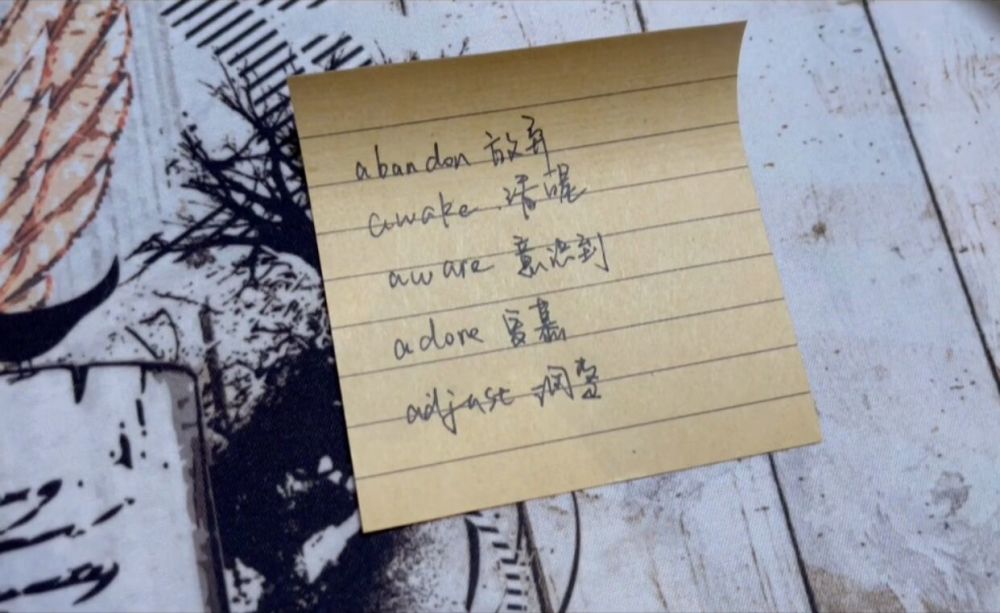 abandon 放弃
awake 清醒
aware 意识到
adore 爱慕
adjust 调整